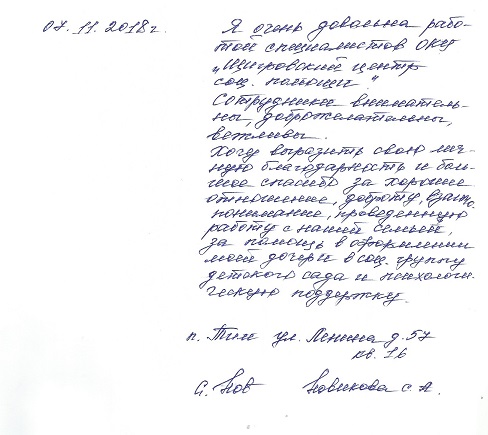 07.11.2018г.
Я очень довольна рабо-
той специалистов ОКУ
„Щигровский центр
соц. помощи".
Сотрудники вниматель-
ны, доброжелательны,
вежливы.
Хочу выразить свою лич-
ную благодарность и боль-
шое спасибо за хорошее
отношение, доброту, взаимо-
понимание, проведенную
работу с нашей семьей,
за помощь в оформлении
моей дочери в соц. группу
детского сада и психологи-
ческую поддержку.
п. Тим ул. Ленина д. 57
кв. 16
С. Нов Новикова С. А.